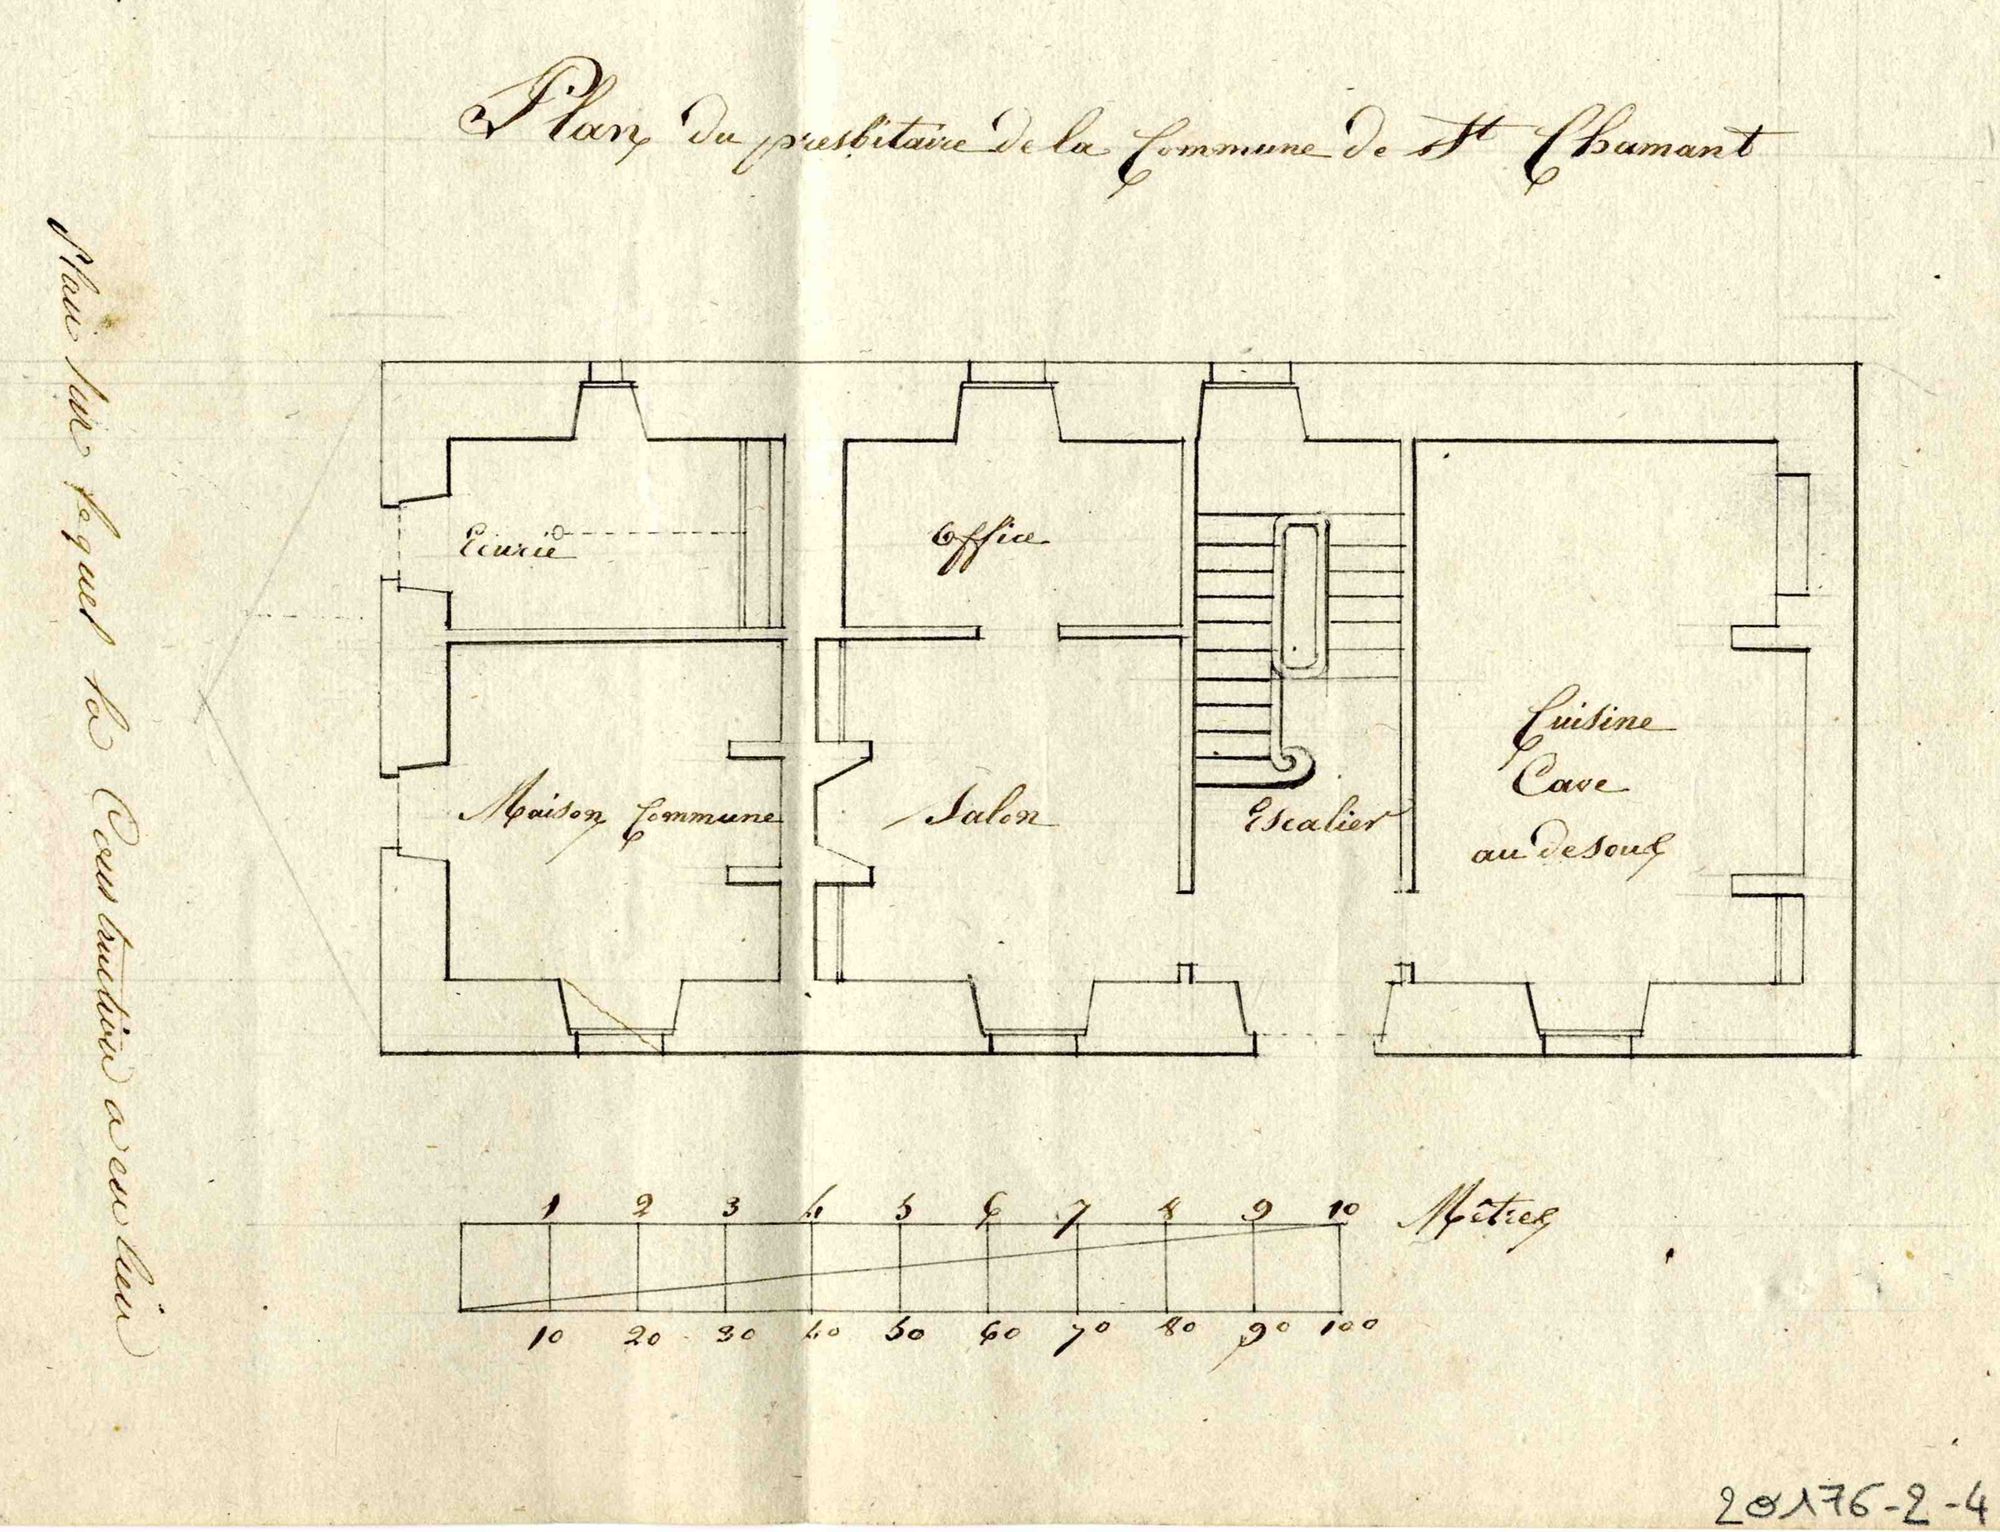 Plan du presbitaire de la Commune de St Chamant
Plan sur lequel la Construction a eu lieu
Ecurie
Office
Maison Commune
Salon
Escalier
Cuisine
Cave
au desous
1 2 3 4 5 6 7 8 9 10 Mêtres
10 20 30 40 50 60 70 80 90 100
20176-2-4